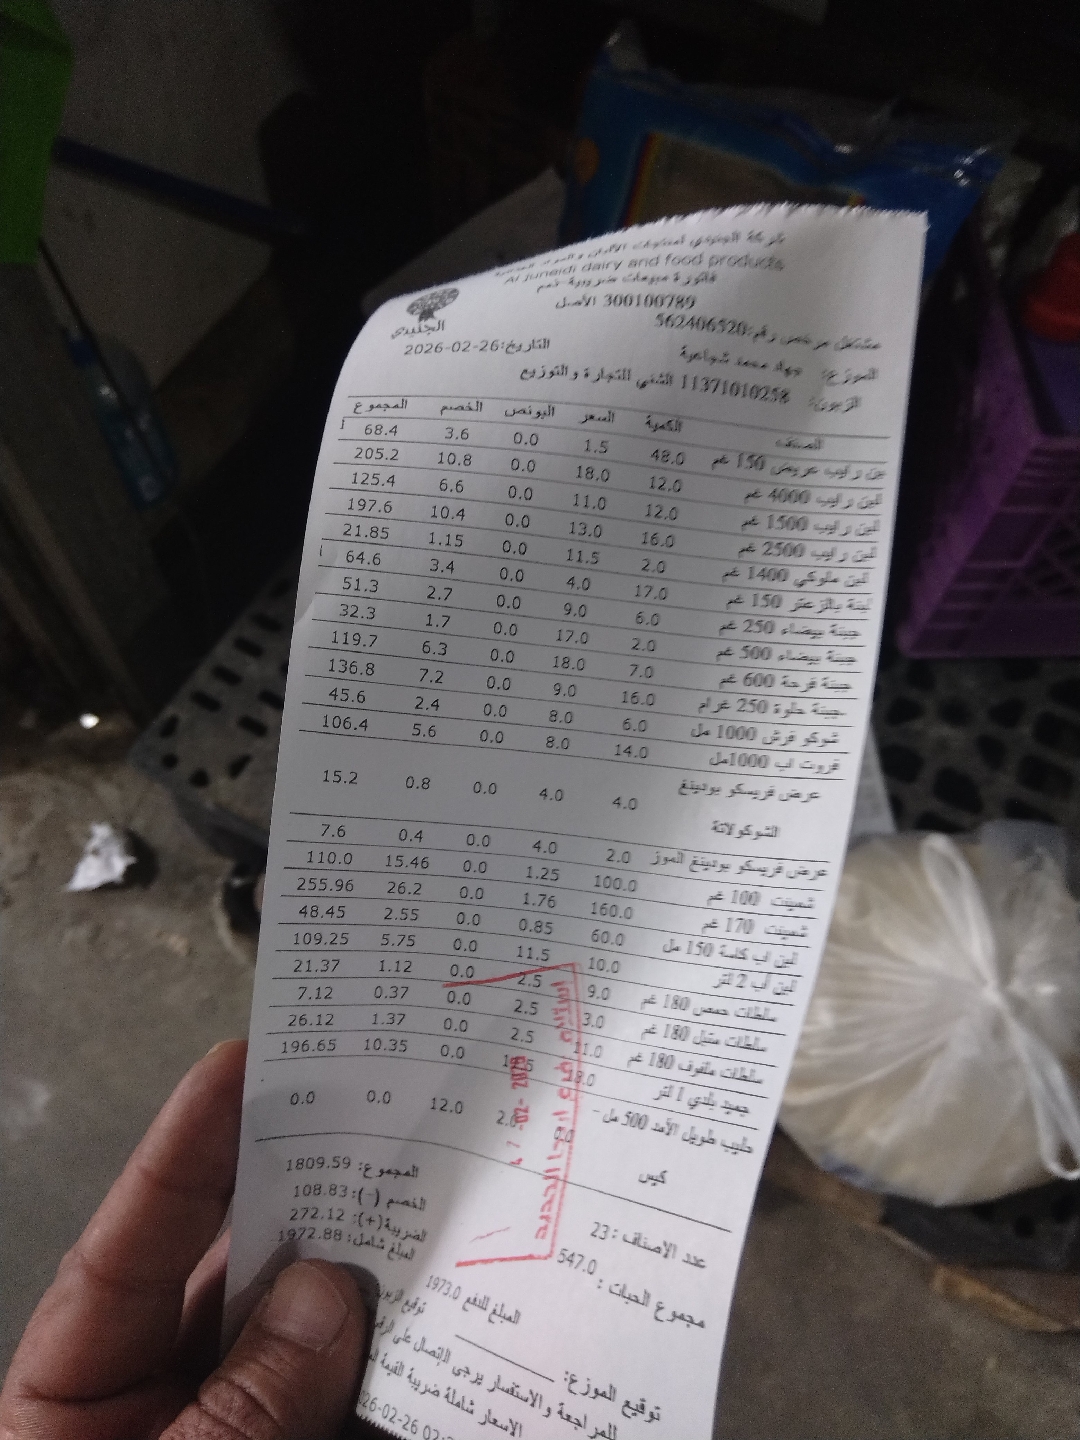 شركة الجنيدي لمنتجات الألبان والمواد الغذائية
Al Juneidi dairy and food products
فاتورة مبيعات ضريبية-ذمم
300100789 الأصل
الجنيدي
مشتغل مرخص رقم:562406520
الموزع: جهاد محمد شواهرة
التاريخ:2026-02-26
الزبون: 11371010258 الشني للتجارة والتوزيع
الصنف الكمية السعر البونص الخصم المجموع
لبن رايب عريض 150 غم 48.0 1.5 0.0 3.6 68.4
لبن رايب 4000 غم 12.0 18.0 0.0 10.8 205.2
لبن رايب 1500 غم 12.0 11.0 0.0 6.6 125.4
لبن رايب 2500 غم 16.0 13.0 0.0 10.4 197.6
لبن ملوكي 1400 غم 2.0 11.5 0.0 1.15 21.85
لبنة بالزعتر 150 غم 17.0 4.0 0.0 3.4 64.6
جبنة بيضاء 250 غم 6.0 9.0 0.0 2.7 51.3
جبنة بيضاء 500 غم 2.0 17.0 0.0 1.7 32.3
جبنة فرحة 600 غم 7.0 18.0 0.0 6.3 119.7
جبنة حلوة 250 غرام 16.0 9.0 0.0 7.2 136.8
شوكو فرش 1000 مل 6.0 8.0 0.0 2.4 45.6
فروت اب 1000مل 14.0 8.0 0.0 5.6 106.4
عرض فريسكو بودينغ 4.0 4.0 0.0 0.8 15.2
الشوكولاتة
عرض فريسكو بودينغ الموز 2.0 4.0 0.0 0.4 7.6
شمينت 100 غم 100.0 1.25 0.0 15.46 110.0
شمينت 170 غم 160.0 1.76 0.0 26.2 255.96
لبن اب كاسة 150 مل 60.0 0.85 0.0 2.55 48.45
لبن أب 2 لتر 10.0 11.5 0.0 5.75 109.25
سلطات حمص 180 غم 9.0 2.5 0.0 1.12 21.37
سلطات متبل 180 غم 3.0 2.5 0.0 0.37 7.12
سلطات ملفوف 180 غم 11.0 2.5 0.0 1.37 26.12
جميد بلدي 1 لتر 0.0 10.35 196.65
حليب طويل الأمد 500 مل - 12.0 0.0 0.0
كيس
المجموع: 1809.59
الخصم (-): 108.83
الضريبة(+): 272.12
المبلغ شامل: 1972.88
عدد الاصناف : 23
مجموع الحبات : 547.0
المبلغ للدفع 1973.0
توقيع الزبون
توقيع الموزع:
للمراجعة والاستفسار يرجى الإتصال على الرقم
الاسعار شاملة ضريبة القيمة
26-02-26